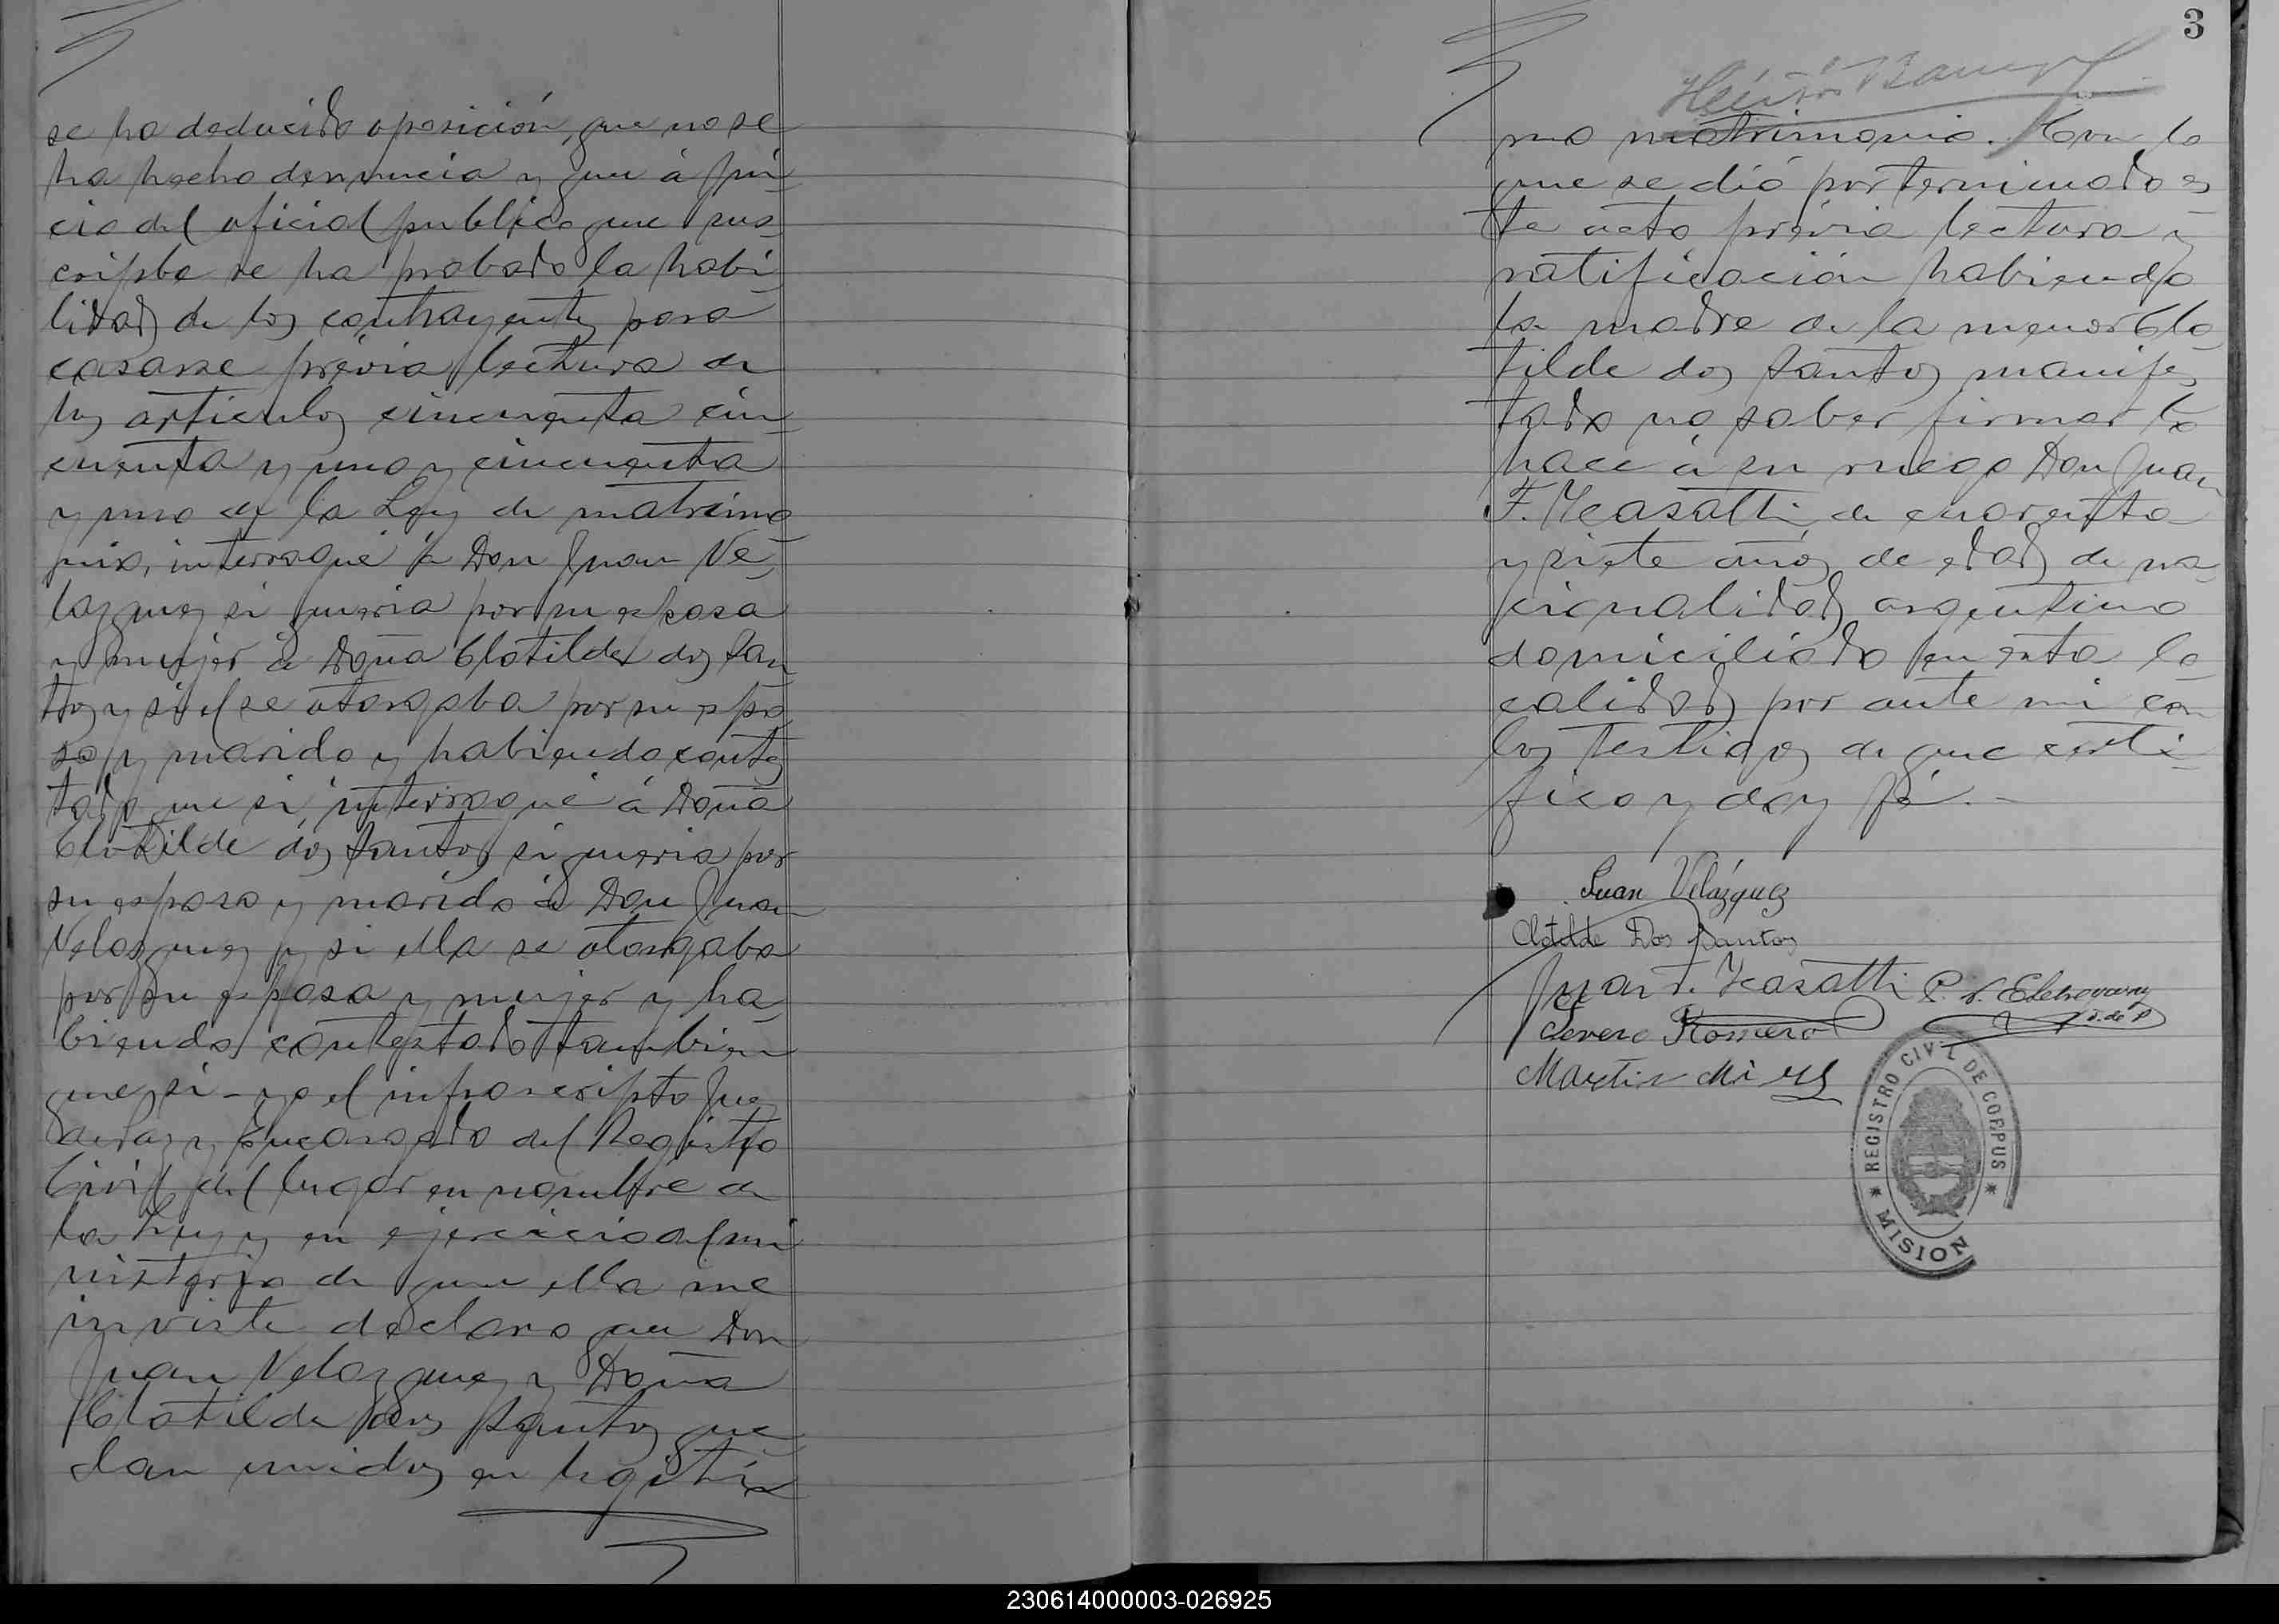 se ha deducido oposición, que no se
ha hecho denuncia y que á jui
cio del oficial publico que sus
cripbe se ha probado la habi
lidad de los contrayentes para
casarse prévia lectura de
los articulos cincuenta cin
cuenta y uno y cincuenta
y uno de la Ley de matrimo
nio, interrogué á Don Juan Ve
lazquez si queria por su esposa
y mujer á Doña Clotilde dos San
tos y si el se otorgaba por su espo
so y marido y habiendo contes
tado que si, interrogué á Doña
Clotilde dos Santos si queria por
su esposo y marido á Don Juan
Velazquez y si ella se otorgaba
por su esposa y mujer y ha
biendo contestado tambien
que si - yo el infrascripto Juez
de Paz y Encargado del Registro
Civil del lugar en nombre de
la Ley y en ejercicio del mi
nisterio de que ella me
inviste declaro que Don
Juan Velazquez y Doña
Clotilde dos Santos que
dan unidos en legiti
3
Héctor
mo matrimonio. Con lo
que se dió por terminado es
te acto prévia lectura y
ratificación habiendo
la madre de la menor Clo
tilde dos Santos manifes
tado no saber firmar lo
hace á su ruego Don Juan
F. Ycasatti de cuarenta
y siete años de edad de na
cionalidad argentino
domiciliado en esta lo
calidad por ante mi con
los testigos de que certi
fico y doy fé.-
Juan Velázquez
Clotilde Dos Santos
Juan F. Ycasatti
P. S. Etchegaray
J. de P
Severo Romero
Martin
REGISTRO CIVIL DE CORPUS
MISION
230614000003-026925